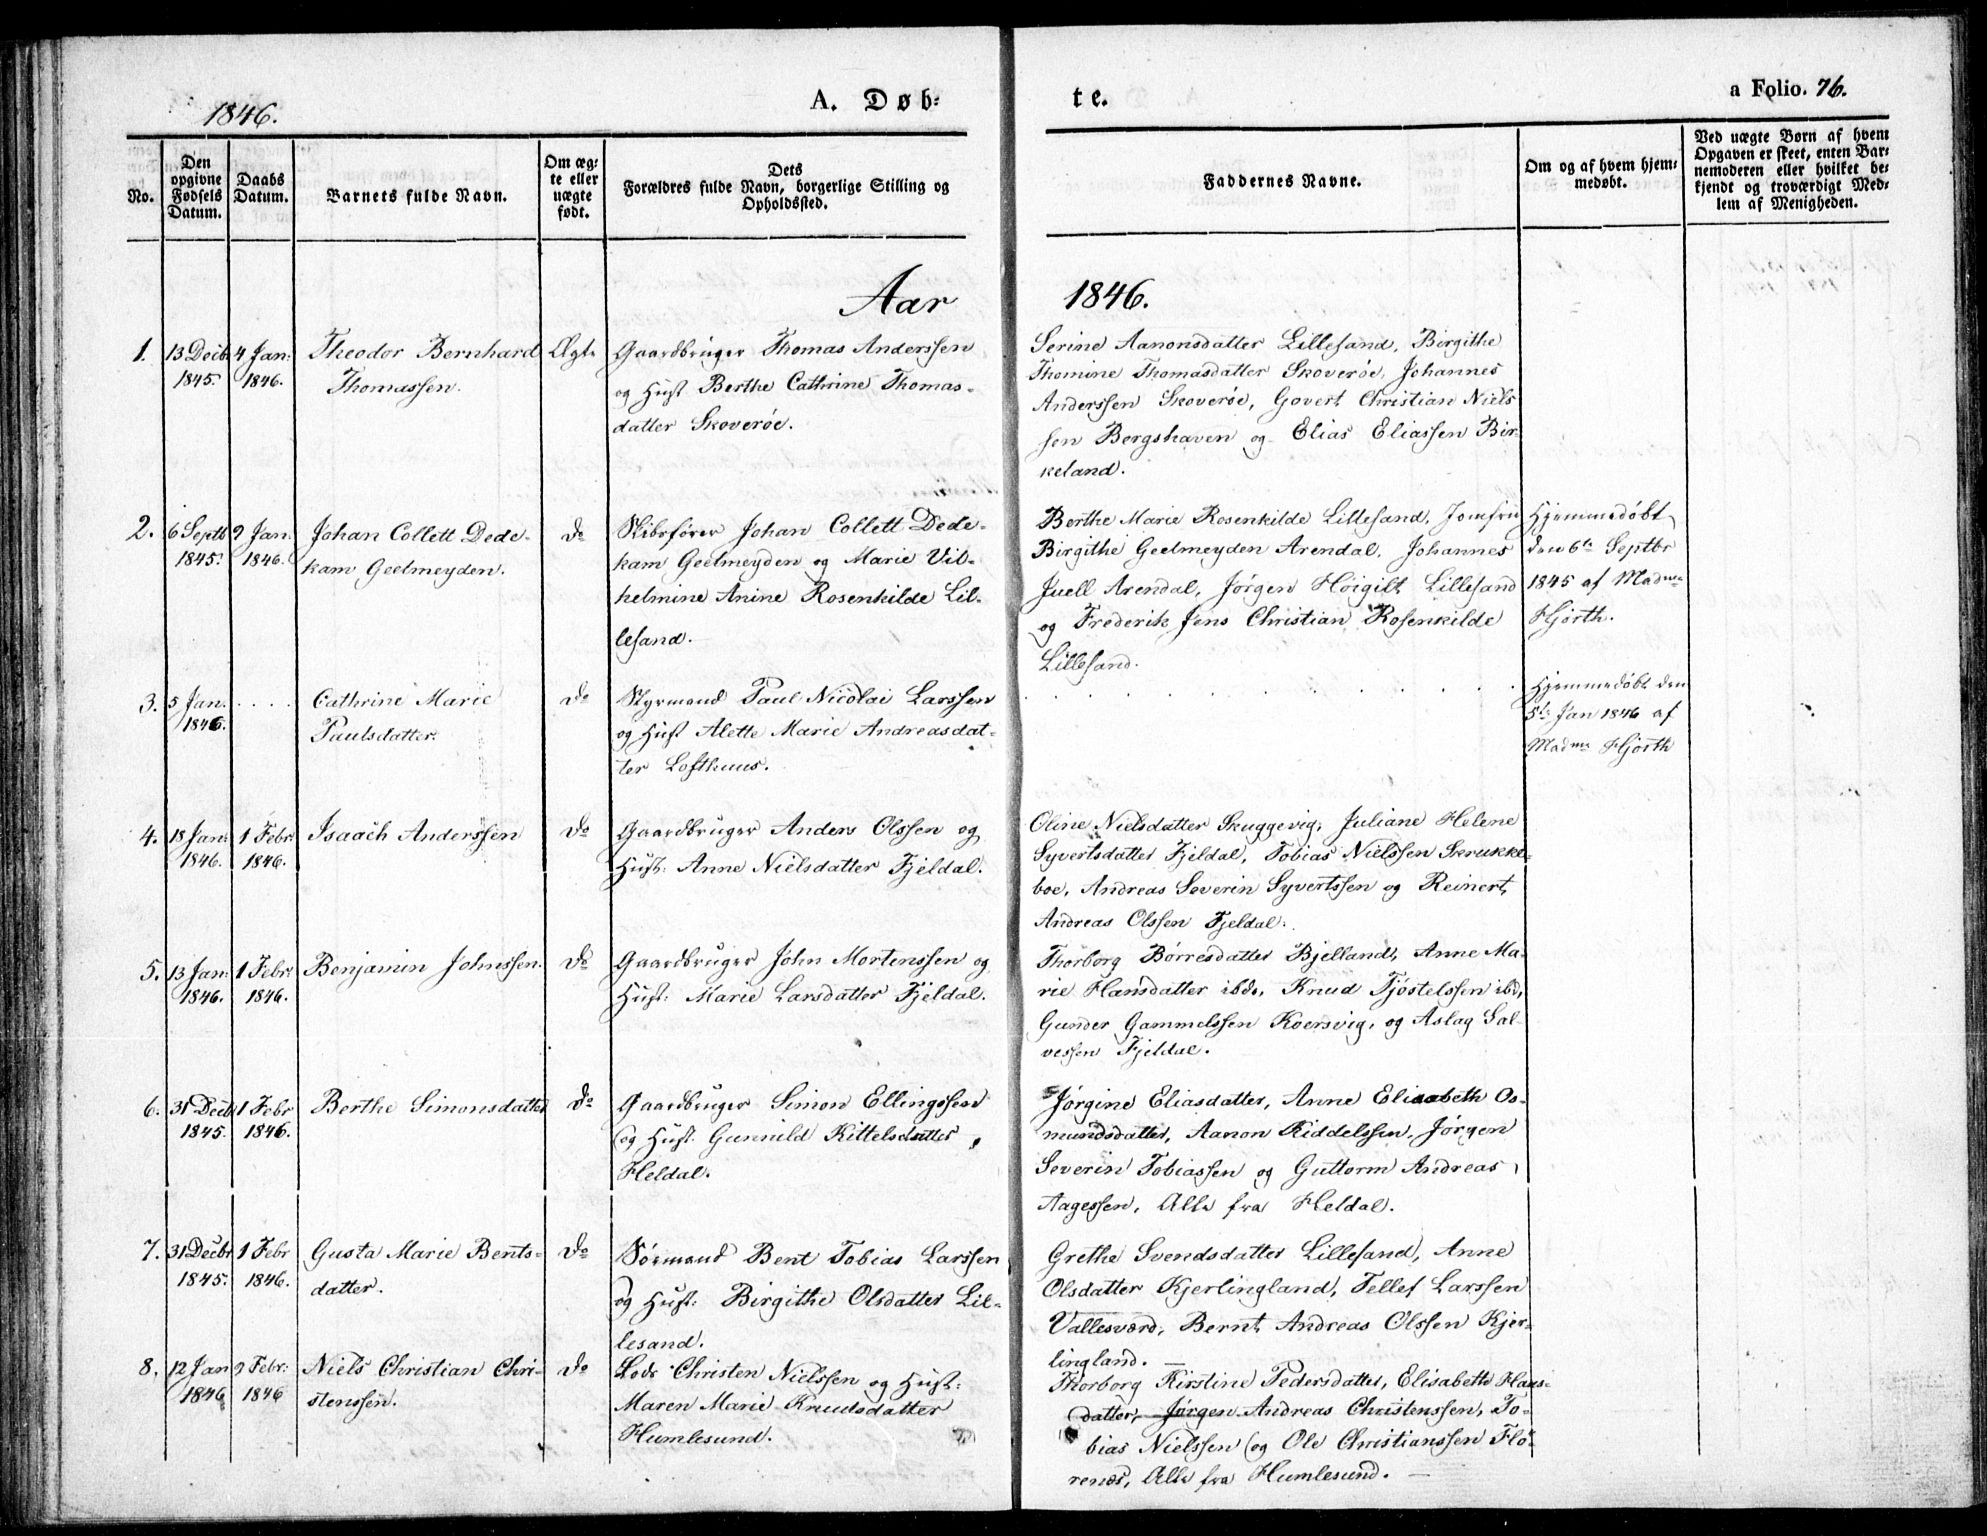 1846.
A. Døb=
te.
a Folio. 76.
No.
Den
opgivne
Fødsels
Datum.
Daabs
Datum.
Barnets fulde Navn.
Om æg=
te eller
uægte
født.
Dets
Forældres fulde Navn, borgerlige Stilling og
Opholdssted.
Faddernes Navne.
Om og af hvem hjem=
medøbt.
Ved uægte Børn af hvem
Opgaven er skeet, enten Bar=
nemoderen eller hvilket be=
kjendt og troværdigt Med=
lem af Menigheden.
Aar
1846.
1.
13 Decb.
1845.
4 Jan:
1846.
Theodor Bernhard
Thomassen.
Ægte
Gaardbruger Thomas Anderssen
og Hust Berthe Cathrine Thomas=
datter Skoverøe.
Serine Aanonsdatter Lillesand, Birgithe
Thomine Thomasdatter Skoverøe, Johannes
Anderssen Skoverøe, Govert Christian Niels
sen Bergshaven og Elias Eliassen Bir=
keland.
2.
6 Septb
1845.
9 Jan:
1846.
Johan Collett Dede=
kam Geelmeyden.
do
Skibsfører Johan Collett Dede=
kam Geelmeyden og Marie Vil=
helmine Anine Rosenkilde Lil=
lesand.
Berthe Marie Rosenkilde Lillesand, Jomfru
Birgithe Geelmeyden Arendal, Johannes
Juell Arendal, Jørgen Høigilt Lillesand
og Frederik Jens Christian Rosenkilde
Lillesand.
Hjemmedøbt
den 6te Septbr
1845 af Madme
Hjorth.
3.
5 Jan.
1846.
. . . .
Cathrine Marie
Paulsdatter.
do
Styrmand Paul Nicolai Larssen
og Hust Alette Marie Andreasdat=
ter Lofthuus.
Hjemmedøbt den
5te Jan 1846 af
Madme Hjorth
4.
18 Jan:
1846.
1 Febr.
1846.
Isaach Anderssen
do
Gaardbruger Anders Olssen og
Hust: Anne Nielsdatter Fjeldal.
Oline Nielsdatter Skuggevig, Juliane Helene
Syvertsdatter Fjeldal, Tobias Nielssen Skrukke=
boe, Andreas Severin Syvertssen og Reinert
Andreas Olssen Fjeldal.
5.
13 Jan:
1846.
1 Febr:
1846.
Benjamin Johnssen.
do
Gaardbruger John Mortenssen og
Hust: Marie Larsdatter Fjeldal.
Thorborg Børresdatter Bjelland, Anne Ma=
rie Hansdatter ibd., Knud Tjøstelssen ibd,
Gunder Gammelssen Koersvig, og Aslag Sal=
vessen Fjeldal.
6.
31 Decb
1845.
1 Febr
1846.
Berthe Simonsdatter
do
Gaardbruger Simon Ellingssen
og Hust: Gunnild Kittelsdatter
Heldal.
Jørgine Eliasdatter, Anne Elisabeth Os=
mundsdatter, Aanon Kiddelssen, Jørgen
Severin Tobiassen og Guttorm Andreas
Aagessen, Alle fra Heldal.
7.
31 Decbr
1845.
1 Febr
1846.
Gusta Marie Bents=
datter.
do
Sørmand Bent Tobias Larssen
og Hust: Birgithe Olsdatter Lil=
lesand.
Grethe Svendsdatter Lillesand, Anne
Olsdatter Kjerlingland, Tellef Larssen
Vallesværd, Bernt Andreas Olssen Kjer=
lingland.
8.
12 Jan
1846
9 Febr:
1846
Niels Christian Chri=
stenssen.
do
Lods Christen Nielssen og Hust:
Maren Marie Knudsdatter
Humlesund.
Thorborg Kirstine Pedersdatter, Elisabeth Hans=
datter, Jørgen Andreas Christenssen, To=
bias Nielssen og Ole Christianssen Flø=
renæs, Alle fra Humlesund.